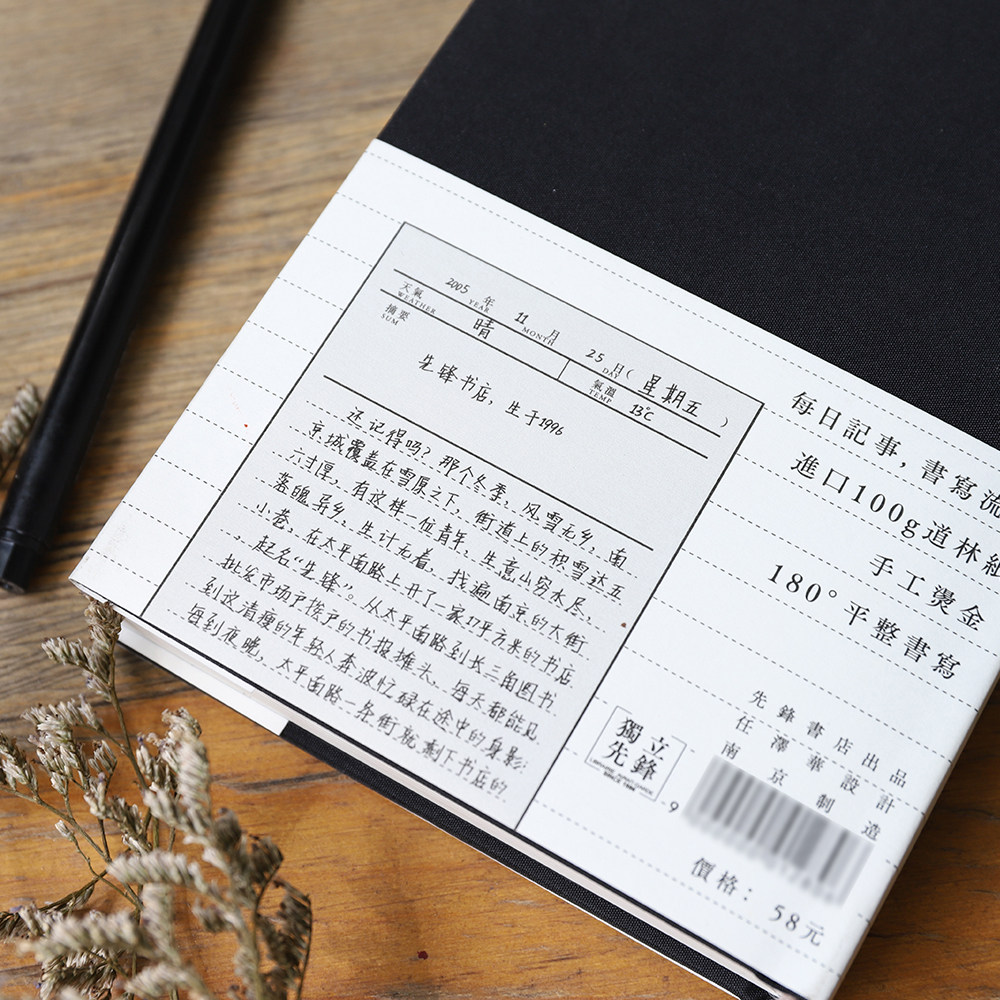 2005 年 11 月 25 日 ( 星期五 )
YEAR MONTH DAY
天氣 晴 氣溫 13℃
WEATHER TEMP
摘要
SUM
先锋书店，生于1996
还记得吗？那个冬季，风雪无乡，南
京城覆盖在雪原之下，街道上的积雪达五
六寸厚，有这样一位青年，生意山穷水尽，
落魄异乡，生计无着，找遍南京的大街
小巷，在太平南路上开了一家17平方米的书店
，起名“先锋”。从太平南路到长三角图书
批发市场户挨户的书报摊头，每天都能见
到这清瘦的年轻人奔波忙碌在途中的身影。
每到夜晚，太平南路一条街就剩下书店的
每日記事，書寫流
進口100g道林紙
手工燙金
180°平整書寫
先鋒書店出品
任澤華設計
南京制造
獨立
先鋒
SINCE 1996
9
價格：58元